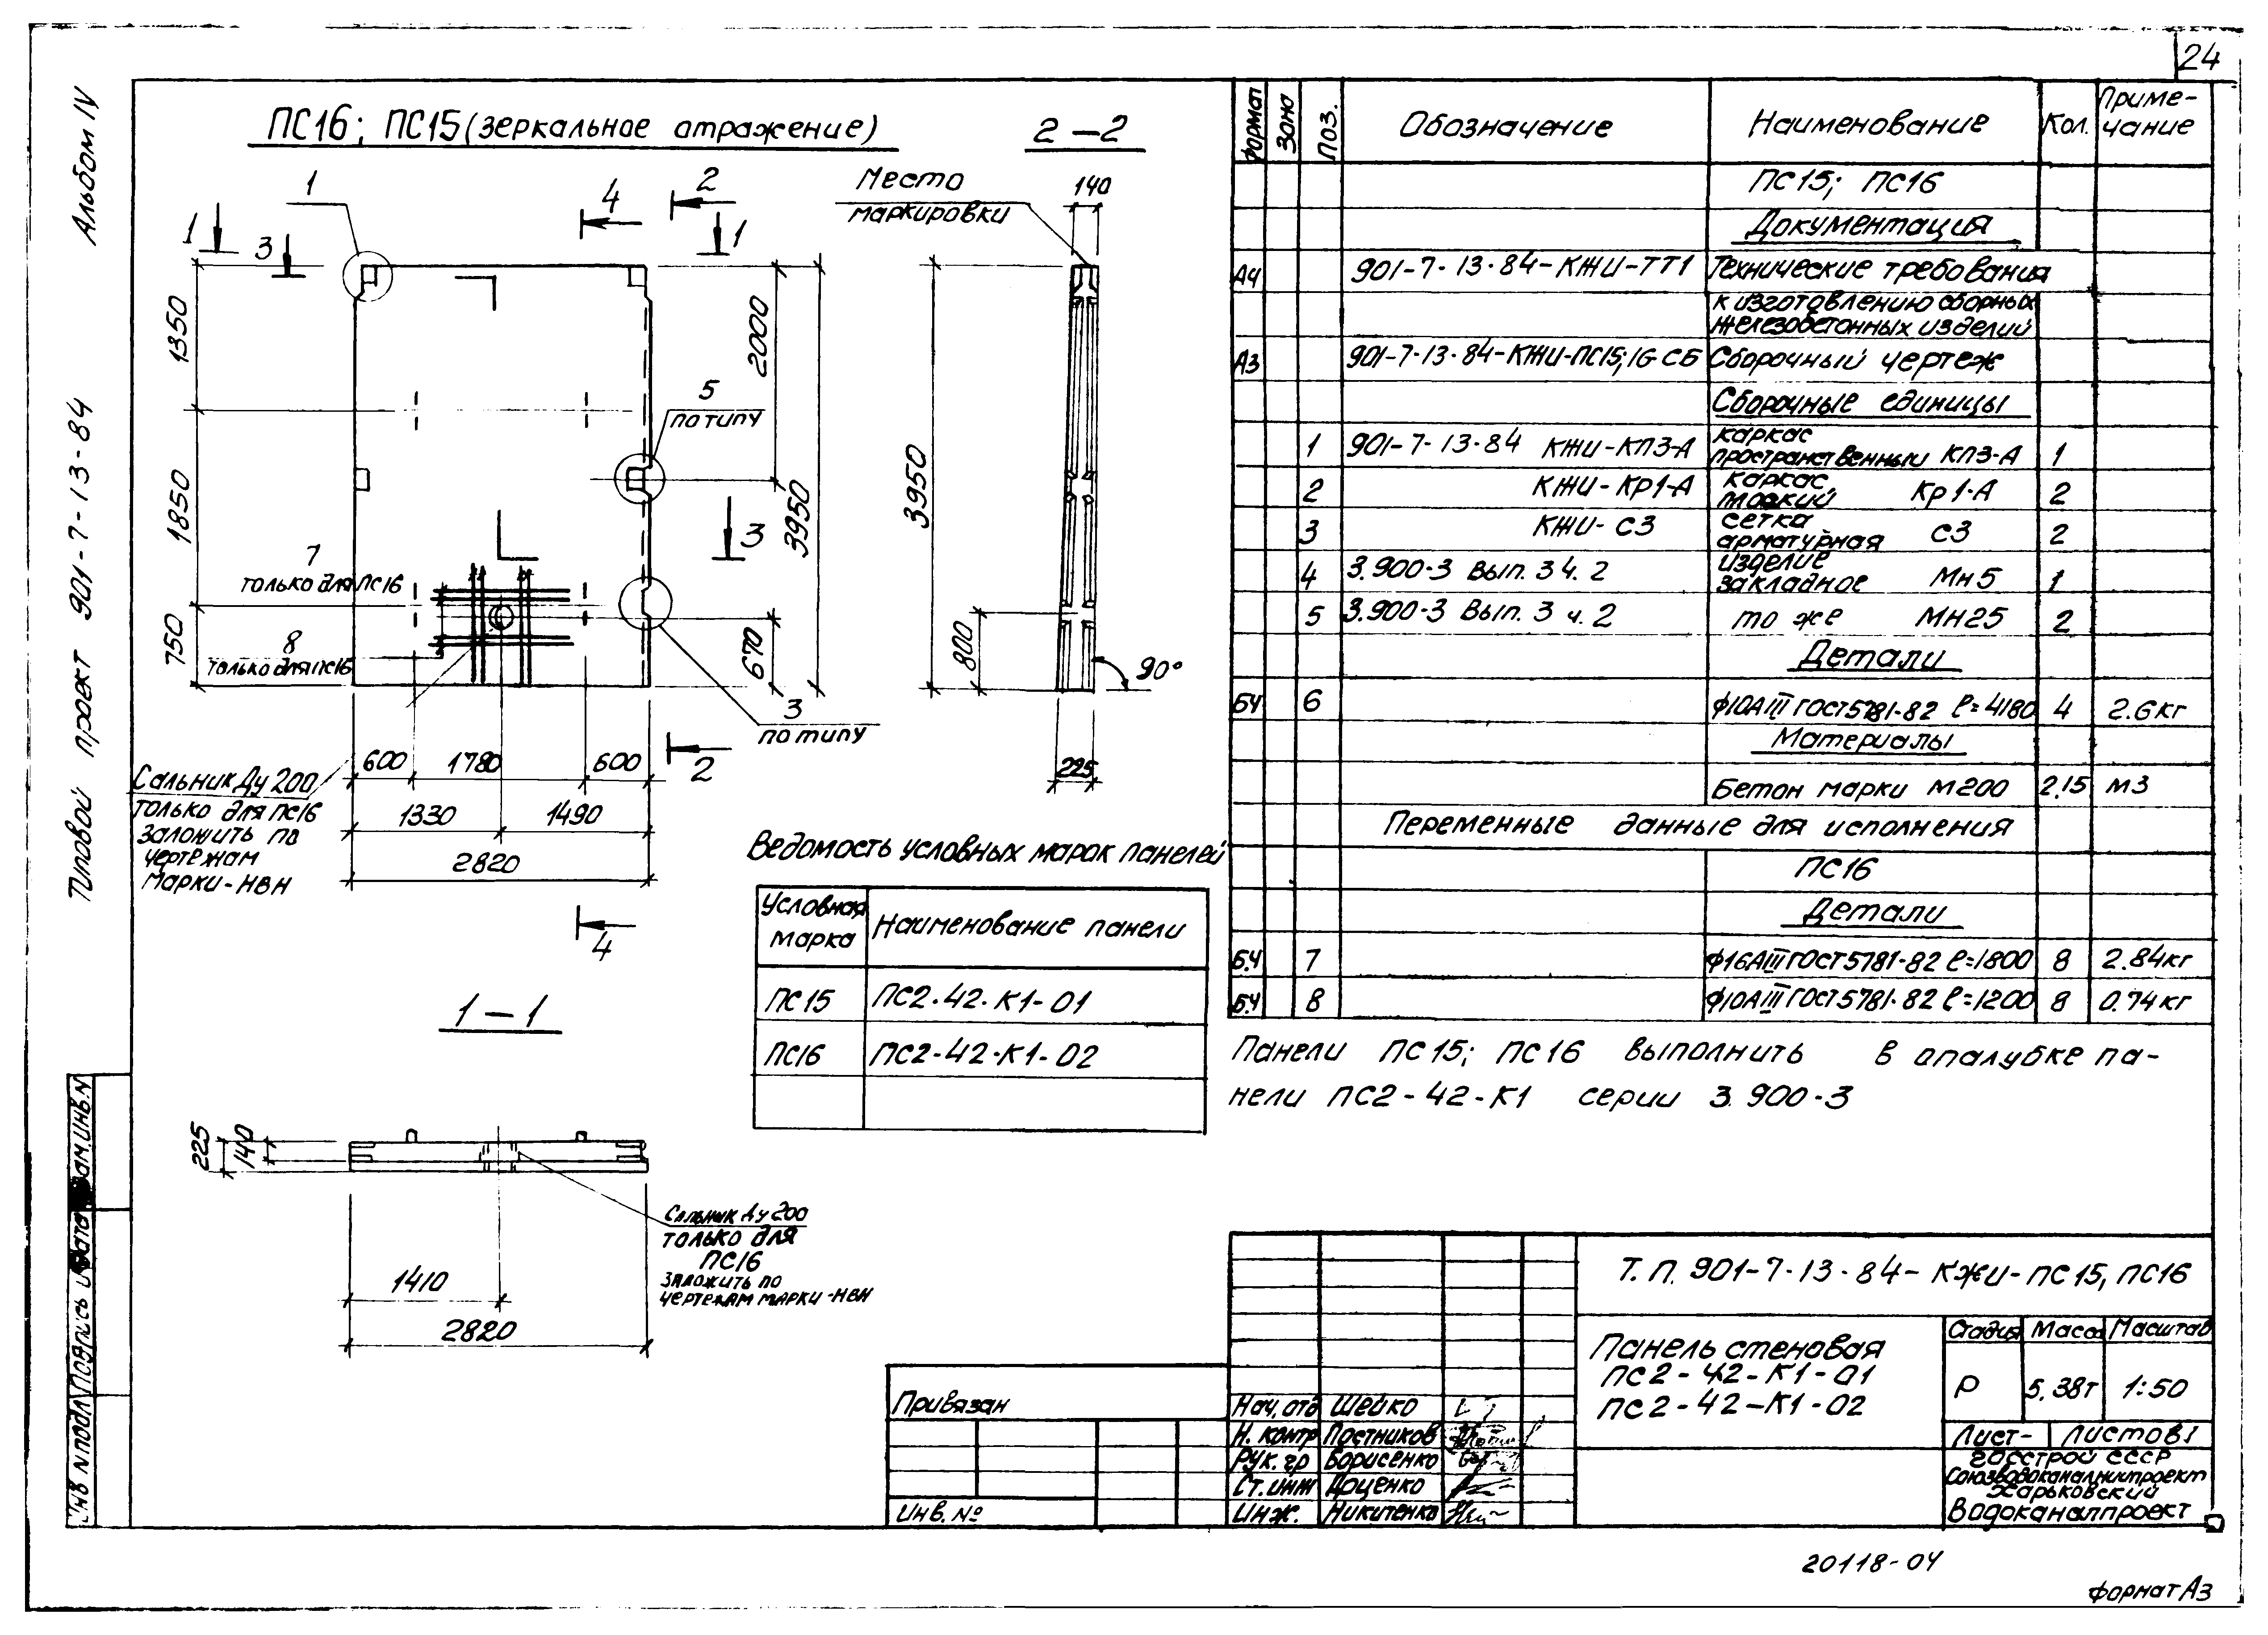 24
Альбом IV
Типовой проект 901-7-13-84
ПС16; ПС15 (зеркальное отражение)
2-2
1
4
2
1
3
1
Место
маркировки
140
1350
1850
750
2000
3950
670
5
по типу
3
7
только для ПС16
8
только для ПС16
3
по типу
2
3950
800
90°
225
600
1780
600
1330
1490
2820
Сальник Ду 200
только для ПС16
Заложить по
чертежам
марки-НВН
4
1-1
225
140
1410
2820
Сальник Ду 200
только для
ПС16
заложить по
чертежам марки-НВН
Ведомость условных марок панелей
Условная марка Наименование панели
ПС15 ПС2-42-К1-01
ПС16 ПС2-42-К1-02
Формат Зона Поз. Обозначение Наименование Кол. Приме-
чание
ПС15; ПС16
Документация
А4 901-7-13-84-КЖИ-ТТ1 Технические требования
к изготовлению сборных
железобетонных изделий
А3 901-7-13-84-КЖИ-ПС15;16 СБ Сборочный чертеж
Сборочные единицы
1 901-7-13-84 КЖИ-КП3-А каркас
пространственный КП3-А 1
2 КЖИ-Кр1-А каркас
плоский Кр1-А 2
3 КЖИ-С3 сетка
арматурная С3 2
4 3.900-3 Вып. 3 ч. 2 изделие
закладное Мн5 1
5 3.900-3 Вып. 3 ч. 2 то же МН25 2
Детали
БЧ 6 ф10АIII ГОСТ5781-82 ℓ=4180 4 2.6кг
Материалы
Бетон марки М200 2.15 м3
Переменные данные для исполнения
ПС16
Детали
Б.Ч 7 ф16АIII ГОСТ5781-82 ℓ=1800 8 2.84кг
Б.Ч 8 ф10АIII ГОСТ5781-82 ℓ=1200 8 0.74кг
Панели ПС15; ПС16 выполнить в опалубке па-
нели ПС2-42-К1 серии 3.900-3
Т.П. 901-7-13-84-КЖИ-ПС15, ПС16
Панель стеновая
ПС2-42-К1-01
ПС2-42-К1-02
Стадия Масса Масштаб
Р 5,38т 1:50
Лист- Листов 1
Госстрой СССР
Союзводоканалниипроект
Харьковский
Водоканалпроект
Нач. отд Шейко
Н. контр Постников
Рук. гр Борисенко
Ст. инж Доценко
Инж. Никитенко
Привязан
Инв. №
Инв N подл Подпись и дата Взам.инв.N
20118-04
Формат А3